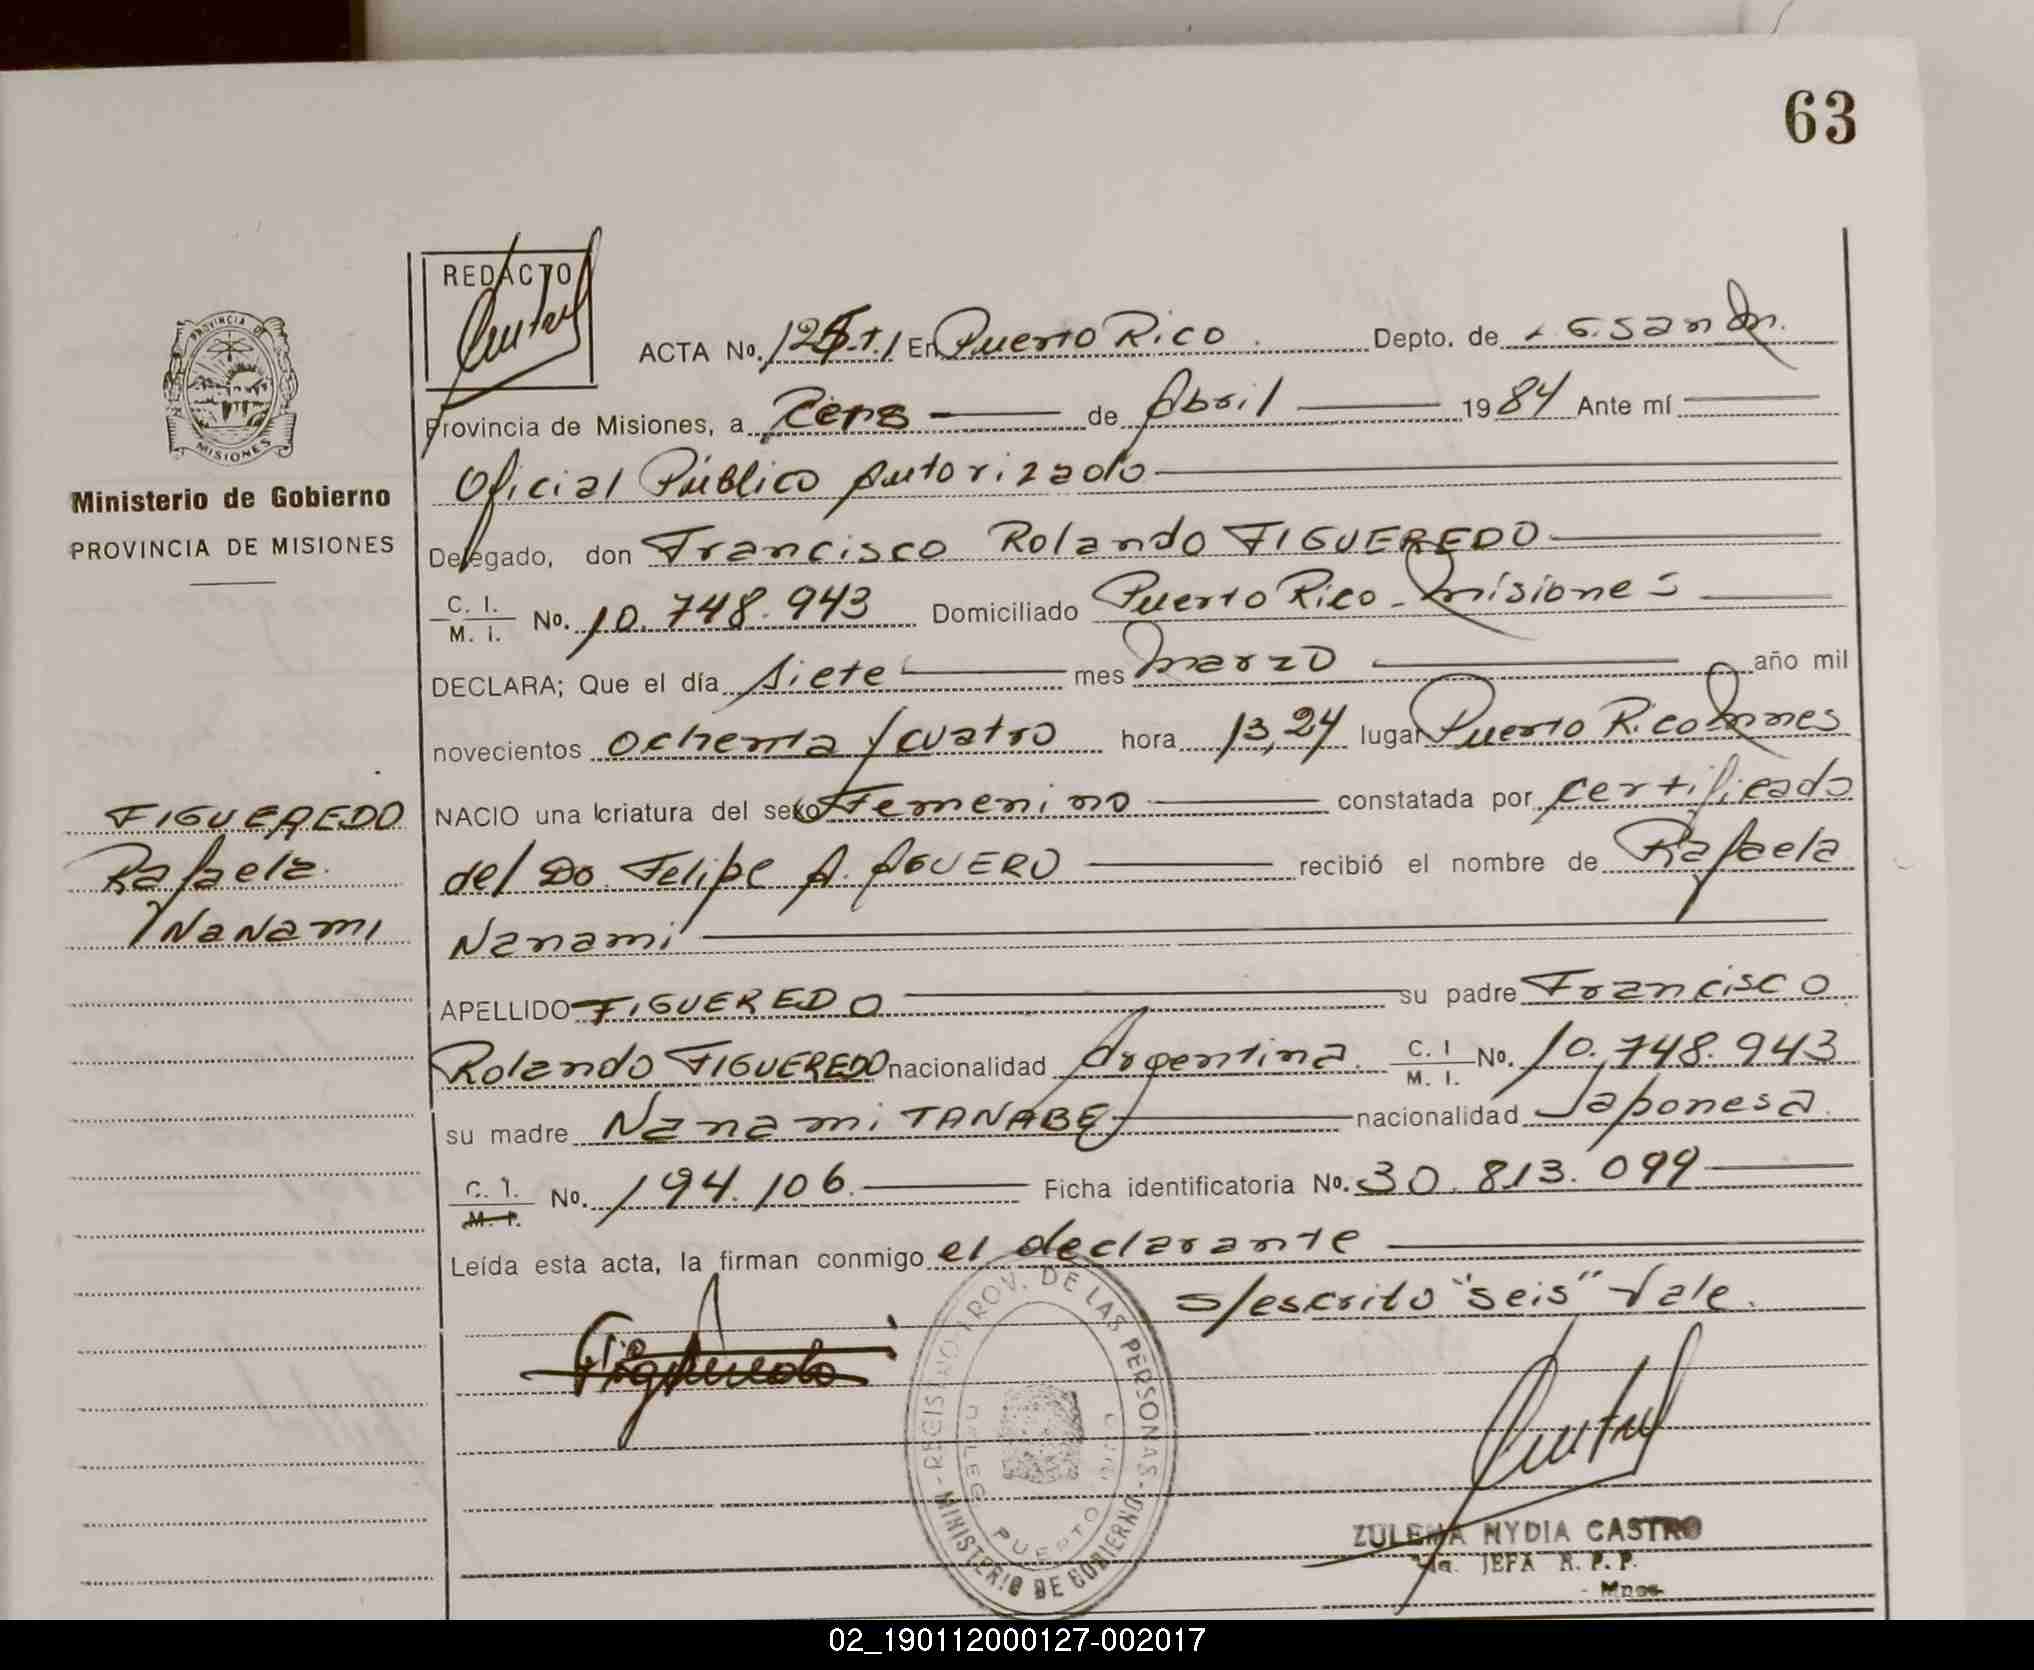 63
PROVINCIA DE
MISIONES
Ministerio de Gobierno
PROVINCIA DE MISIONES
FIGUEREDO
Rafaela
Nanami
REDACTO
ACTA No. T.I En Puerto Rico. Depto. de L.G.San M.
Provincia de Misiones, a de Abril 1984 Ante mí
Oficial Público Autorizado
Delegado, don Francisco Rolando FIGUEREDO
C. I. M. I. No. 10.748.943 Domiciliado Puerto Rico - Misiones
DECLARA; Que el día siete mes marzo año mil
novecientos ochenta y cuatro hora 13,24 lugar Puerto Rico Mnes
NACIO una criatura del sexo Femenino constatada por certificado
del Do. Felipe A. AGUERO recibió el nombre de Rafaela
Nanami
APELLIDO FIGUEREDO su padre Francisco
Rolando FIGUEREDO nacionalidad Argentina. C. I M. I. No. 10.748.943
su madre Nanami TANABE nacionalidad Japonesa.
C. I. M. I. No. 194.106. Ficha identificatoria No. 30.813.099
Leída esta acta, la firman conmigo el declarante
s/escrito "seis" Vale.
Figueredo
REGISTRO PROV. DE LAS PERSONAS - MINISTERIO DE GOBIERNO -
PUERTO
ZULEMA NYDIA CASTRO
JEFA R. P. P.
Mnes
02_190112000127-002017